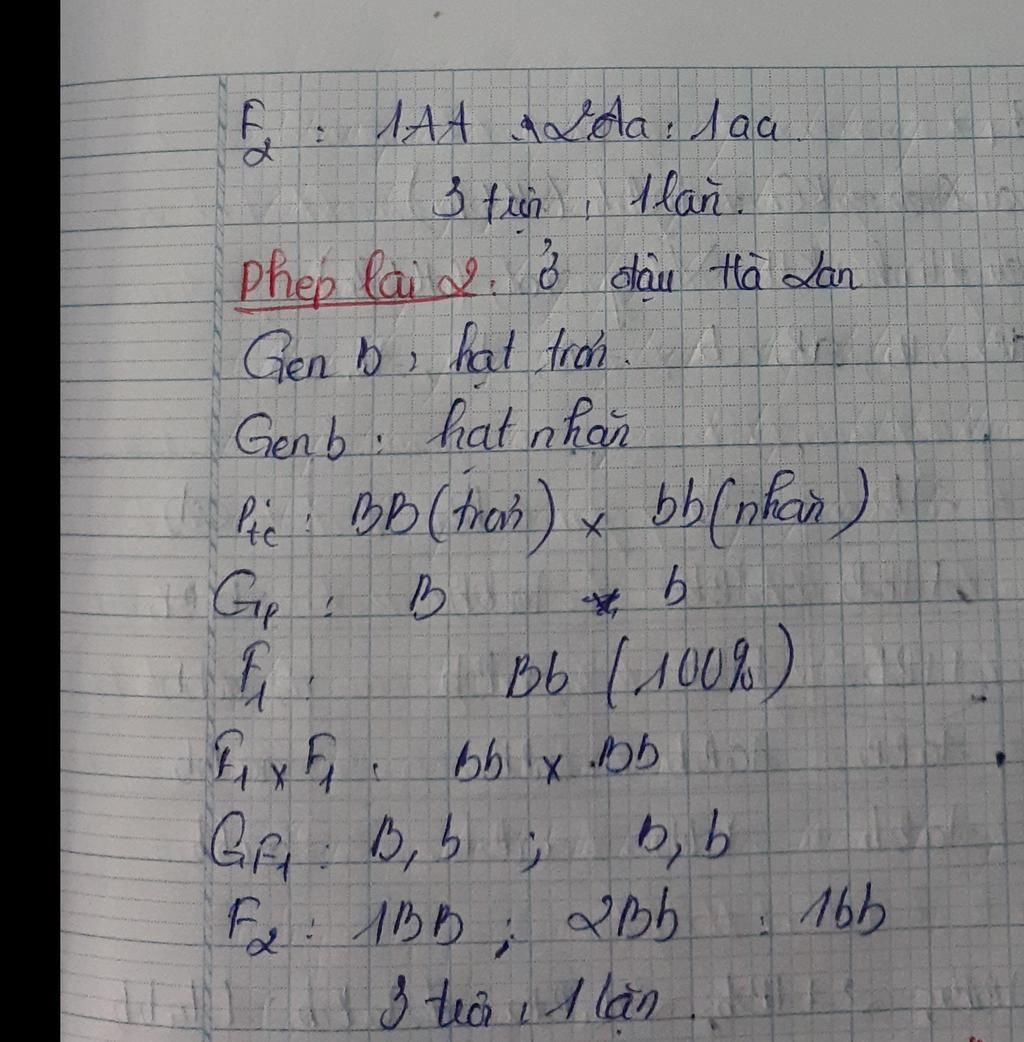 F2 : 1AA : 2Aa : 1aa
3 trội : 1 lặn.
Phép lai 2: Ở đậu Hà Lan
Gen B : hạt trơn.
Gen b : hạt nhăn
Ptc : BB (trơn) x bb (nhăn)
Gp : B b
F1 : Bb (100%)
F1 x F1 : Bb x Bb
GF1 : B, b ; B, b
F2 : 1BB : 2Bb : 1bb
3 trội : 1 lặn.